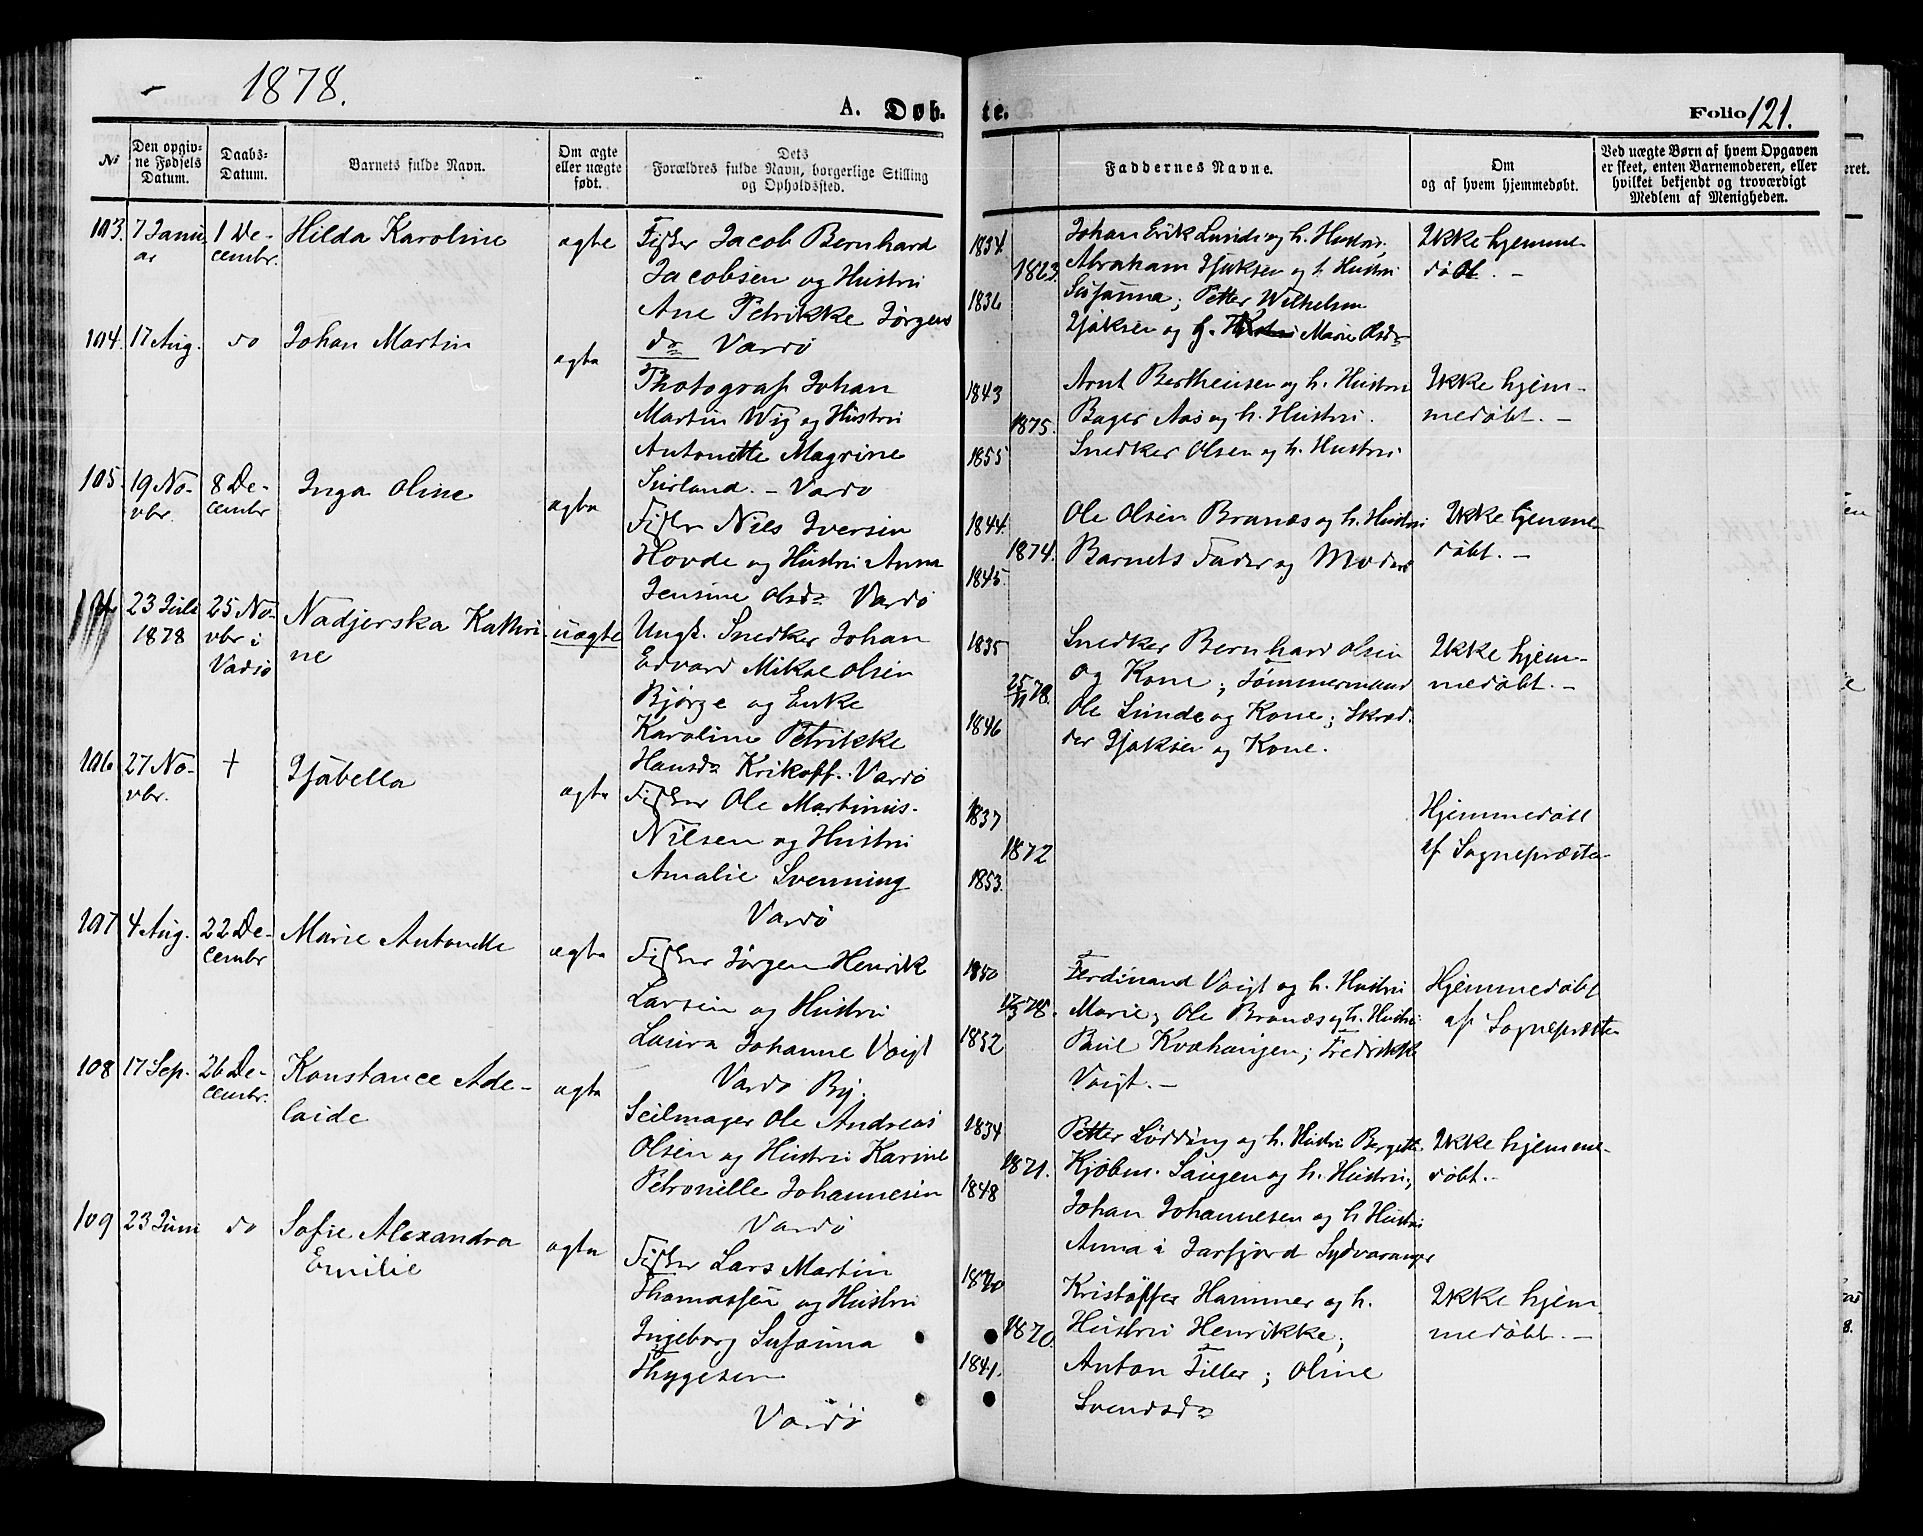 1878.
A. Døb-
te.
Folio 121.
No
Den opgiv-
ne Fødsels
Datum.
Daabs-
Datum.
Barnets fulde Navn.
Om ægte
eller uægte
født.
Dets
Forældres fulde Navn, borgerlige Stilling
og Opholdssted.
Faddernes Navne.
Om
og af hvem hjemmedøbt.
Ved uægte Børn af hvem Opgaven
er skeet, enten Barnemoderen, eller
hvilket bekjendt og troværdigt
Medlem af Menigheden.
103.
7 Janu
ar
1 De-
cembr.
Hilda Karoline
ægte
Fisker Jacob Bernhard
Jacobsen og Hustru
Ane Petrikke Jørgens
da Vardø
1834.
1863.
1836
Johan Erik Lunde og h. Hustru,
Abraham Isaksen og h. Hustru
Susanna; Petter Wilhelm
Isaksen og h. Hustru Marie Olsd.
Ikke hjemme-
døbt. -
104.
17 Aug.
do
Johan Martin
ægte
Photograf Johan
Martin Wig og Hustru
Antonette Magrine
Suland. - Vardø
1843
1875.
1855
Arnt Bertheusen og h. Hustru
Bager Aas og h. Hustru.
Snedker Olsen og h. Hustru
Ikke hjem-
medøbt. -
105.
19 No-
vbr.
8 De-
cembr
Inga Oline
ægte
Fisker Nils Iversen
Hovde og Hustru Anna
Jensine Olsda Vardø
1844.
1874.
1845.
Ole Olsen Branæs og h. Hustru
Barnets Fader og Moder
Ikke hjemme-
døbt. -
23 Juli
1878
25 No-
vbr i
Vadsø
Nadjerska Kathri-
ne
uægte
Ungk. Snedker Johan
Edvard Mikal Olsen
Bjørge og Enke
Karoline Petrikke
Hansda Krikoff. Vardø
1835
25/11 78.
1846
Snedker Bernhard Olsen
og Kone; Tømmermand
Ole Lunde og Kone; Skræd-
der Isaksen og Kone.
Ikke hjem-
medøbt. -
106
27 No-
vbr.
+
Isabella
ægte
Fisker Ole Martinus
Nilsen og Hustru
Amalie Svenning
Vardø
1837
1872
1853.
Hjemmedøbt
af Sognepræsten
107
4 Aug.
22 De-
cembr
Marie Antonette
ægte
Fisker Jørgen Henrik
Larsen og Hustru
Laura Johanne Voigt
Vardø By.
1850
17/3 78.
1852
Ferdinand Voigt og h. Hustru
Marie; Ole Branæs og h. Hustru
Paul Kvæhangen; Fredrikke
Voigt. -
Hjemmedøbt
af Sognepræsten
108
17 Sep.
26 De-
cembr.
Konstance Ade-
laide
ægte
Seilmager Ole Andreas
Olsen og Hustru Karine
Petronelle Johannesen
Vardø
1834
1871.
1848
Petter Lødding og h. Hustru Bergette
Kjøbm. Saugen og h. Hustru;
Johan Johannesen og h. Hustru
Anna i Jarfjord Sydvaranger
Ikke hjemme-
døbt. -
109
23 Juni
do
Sofie Alexandra
Emilie
ægte
Fisker Lars Martin
Thomassen og Hustru
Ingeborg Susanna
Thygesen
Vardø
1840
1870.
1841.
Kristoffer Hammer og h.
Hustru Henrikke;
Anton Tiller; Oline
Svendsda
Ikke hjem
medøbt. -